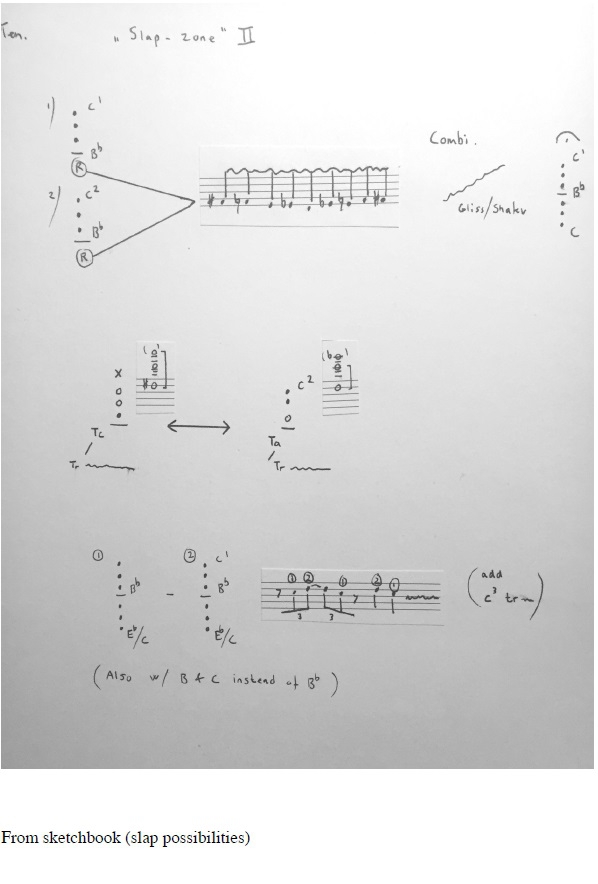 Ten. "Slap-zone" II
1) C¹
B♭
R
2) C²
B♭
R
Combi.
Gliss/Shake
C¹
B♭
C
x
Tc
Tr
C²
Ta
Tr
① ② C¹
B♭ - B♭
E♭/C E♭/C
① ② ① ② ①
3 3
(add
c³ tr)
(Also w/ B & C instead of B♭)
From sketchbook (slap possibilities)